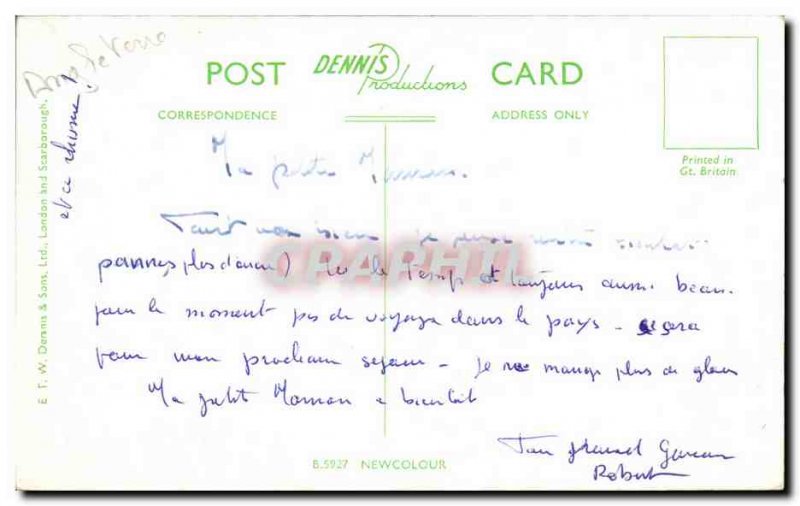 Angleterre
et ce rhume!
POST DENNIS Productions CARD
CORRESPONDENCE ADDRESS ONLY
Printed in
Gt. Britain
Ma petite Maman.
Tout va bien je
le temps est toujours aussi beau.
pour le moment pas de voyage dans le pays - sera
pour mon prochain séjour - Je ne mange plus de
Ma petite Maman à bientôt
Ton grand Garçon
Robert
B.5927 NEWCOLOUR
E. T. W. Dennis & Sons, Ltd., London and Scarborough.
CPAPHIL